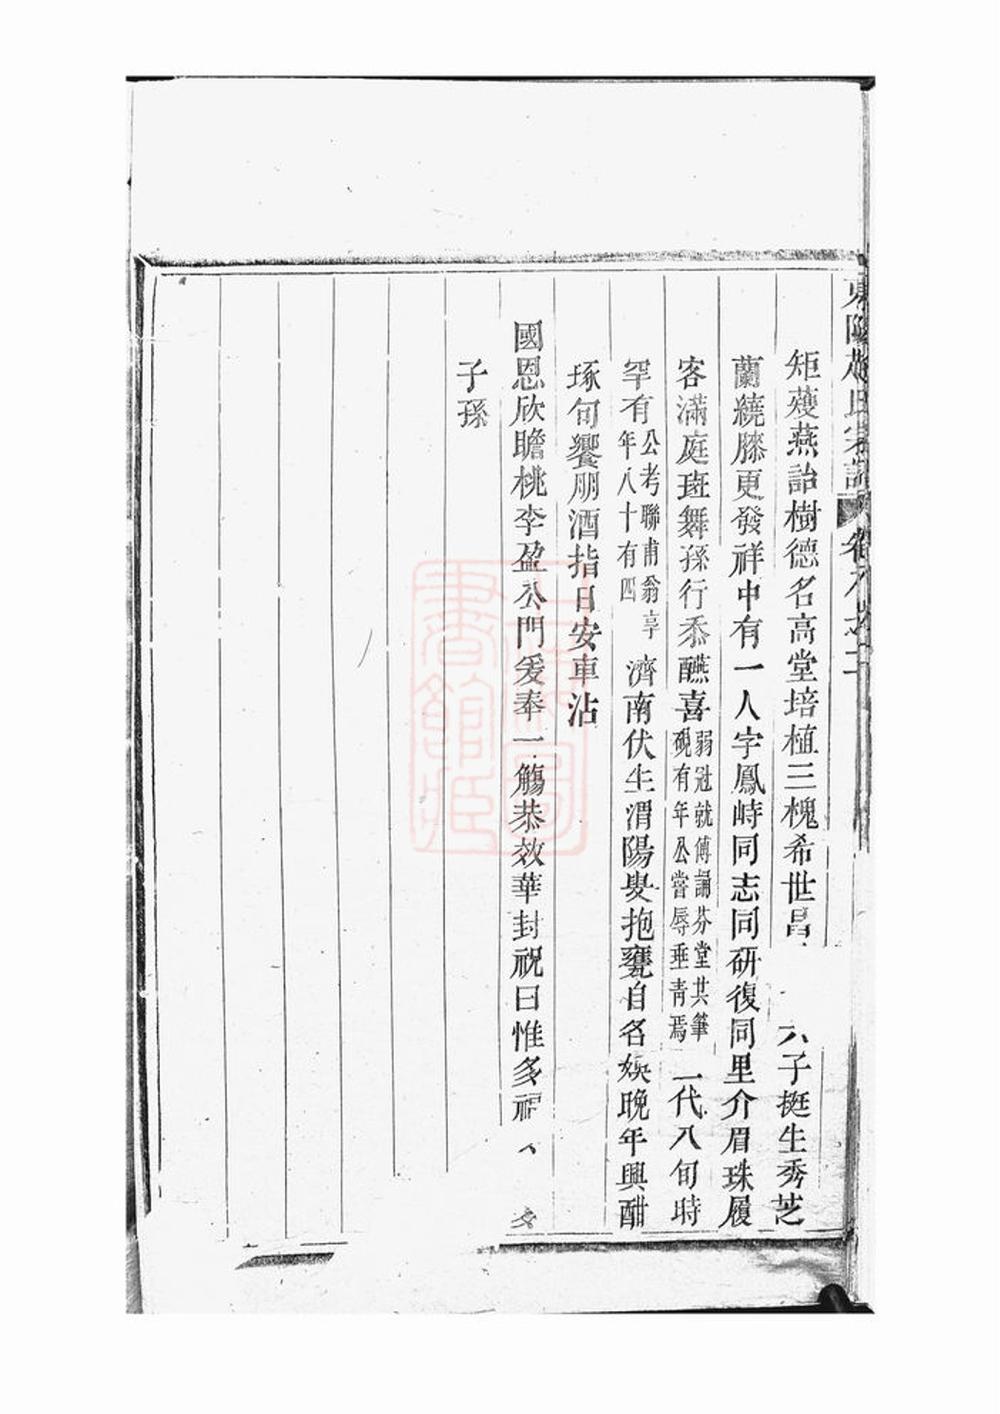 東陽趙氏宗譜 卷 之二
矩蒦燕詒樹德名高堂培植三槐希世昌 六子挺生秀芝
蘭繞膝更發祥中有一人字鳳峙同志同研復同里介眉珠履
客滿庭班舞孫行忝醼喜弱冠就傅誦芬堂共筆硯有年公嘗辱垂青焉一代八旬時
罕有公考聯甫翁享年八十有四濟南伏生渭陽叟抱甕自名娛晚年興酣
琢句饗朋酒指日安車沾
國恩欣瞻桃李盈公門爰奉一觴恭效華封祝曰惟多福
子孫